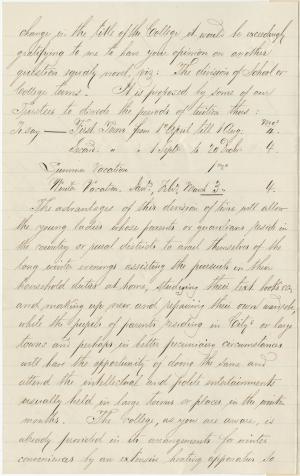 change in the title of the College, it would be exceedingly
gratifying to me to have your opinion on another
question equally novel, viz: The division of School or
College terms. It is proposed by some of our
Trustees to divide the periods of tuition thus:
To say — First Term from 1st April till 1 Aug. 4 mos
Second " " 1 Septr to 20 Decb. 4.
Summer Vacation 1 mo
Wintr Vacation. Jany, Feby, March 3 - 4.
The advantages of this division of time will allow
the young ladies whose parents or guardians reside in
the country or rural districts to avail themselves of the
long winter evenings assisting the parents in their
household duties at home, studying their text books &c,
and making up new and repairing their own wardrobe,
while the pupils of parents residing in City's or large
towns and perhaps in better pecuniary circumstances
will have the opportunity of doing the same and
attend the intellectual and polite entertainments
usually held in large towns or places, in the winter
months. The College, as you are aware, is
already provided in its arrangements for winter
conveniences by an extensive heating apparatus so